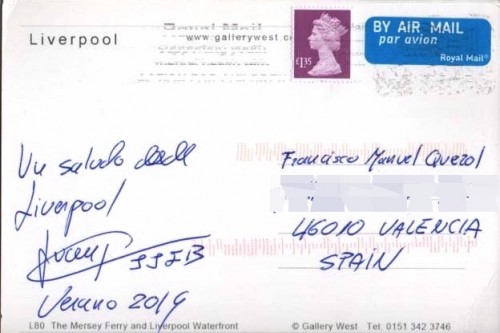 Liverpool
www.gallerywest.co
£1.35
BY AIR MAIL
par avion
Royal Mail®
Un saludo desde
Liverpool
SSIB
Verano 2019
Francisco Manuel Querol
46010 VALENCIA
SPAIN
L80 The Mersey Ferry and Liverpool Waterfront
© Gallery West Tel: 0151 342 3746